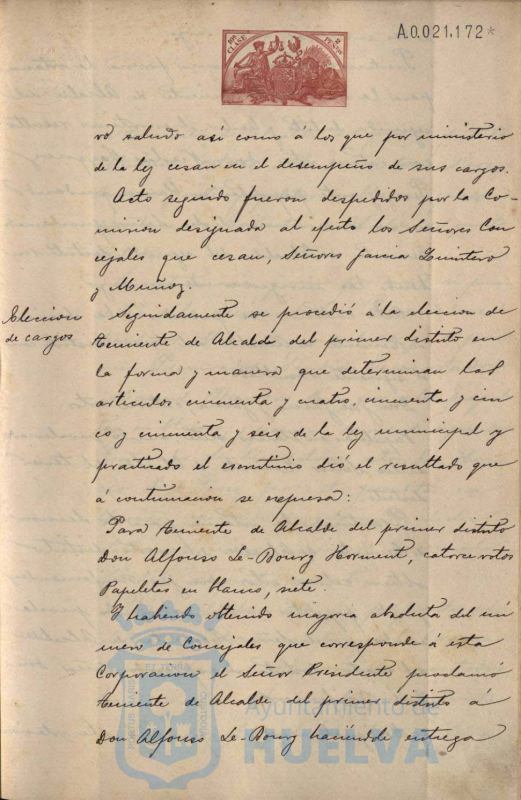 A.0.021,172*
10ª CLASE 2 PESETAS
vo saludo así como á los que por ministerio
de la ley cesan en el desempeño de sus cargos.
Acto seguido fueron despedidos por la Co-
mision designada al efecto los Señores Con
cejales que cesan, Señores Garcia Quintero
y Muñoz.
Eleccion
de cargos
Seguidamente se procedió á la eleccion de
Teniente de Alcalde del primer distrito en
la forma y manera que determinan los
articulos cincuenta y cuatro, cincuenta y cin
co y cincuenta y seis de la ley municipal y
practicado el escrutinio dió el resultado que
á continuacion se expresa:
Para Teniente de Alcalde del primer distrito
Don Alfonso Le-Bourg Horment, catorce votos
Papeletas en blanco, siete.
Y habiendo obtenido mayoria absoluta del nú
mero de Concejales que corresponde á esta
Corporacion el Señor Presidente proclamó
Teniente de Alcalde del primer distrito á
Don Alfonso Le-Bourg haciéndole entrega
Ayuntamiento de
HUELVA